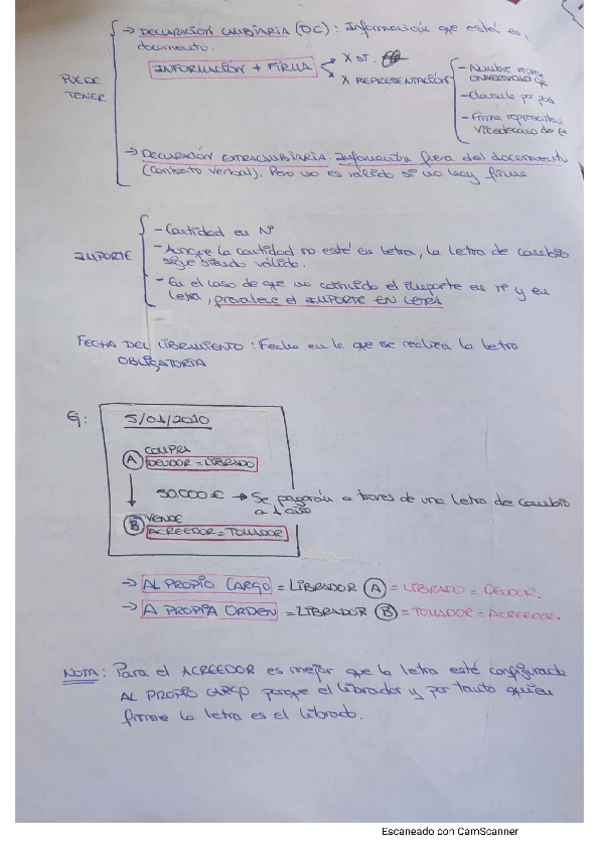 → DECLARACIÓN CAMBIARIA (DC): Información que está en
documento.
INFORMACIÓN + FIRMA
X ST.
X REPRESENTACIÓN
- Nombre repres
- Clausula por pod
- Firma representan
Vicedecano de
PUEDE
TENER
→ DECLARACIÓN EXTRACAMBIARIA: Información fuera del document
(Contrato verbal). Pero no es válido si no hay firma
IMPORTE
- Cantidad en Nº
- Aunque la cantidad no esté en letra, la letra de cambio
sigue siendo válido.
- En el caso de que no coincida el importe en nº y en
letra, prevalece el IMPORTE EN LETRA
FECHA DEL LIBRAMIENTO: Fecha en la que se realiza la letra
OBLIGATORIA
Ej:
5/01/2010
COMPRA
A DEUDOR = LIBRADO
↓ 30.000 € → Se pagarán a traves de una letra de cambio
a 1 año
VENDE
B ACREEDOR = TOMADOR
→ AL PROPIO CARGO = LIBRADOR A = LIBRADO = DEUDOR.
→ A PROPIA ORDEN = LIBRADOR B = TOMADOR = ACREEDOR.
NOTA: Para el ACREEDOR es mejor que la letra esté configurada
AL PROPIO CARGO porque el librador y por tanto quien
firme la letra es el librado.
Escaneado con CamScanner